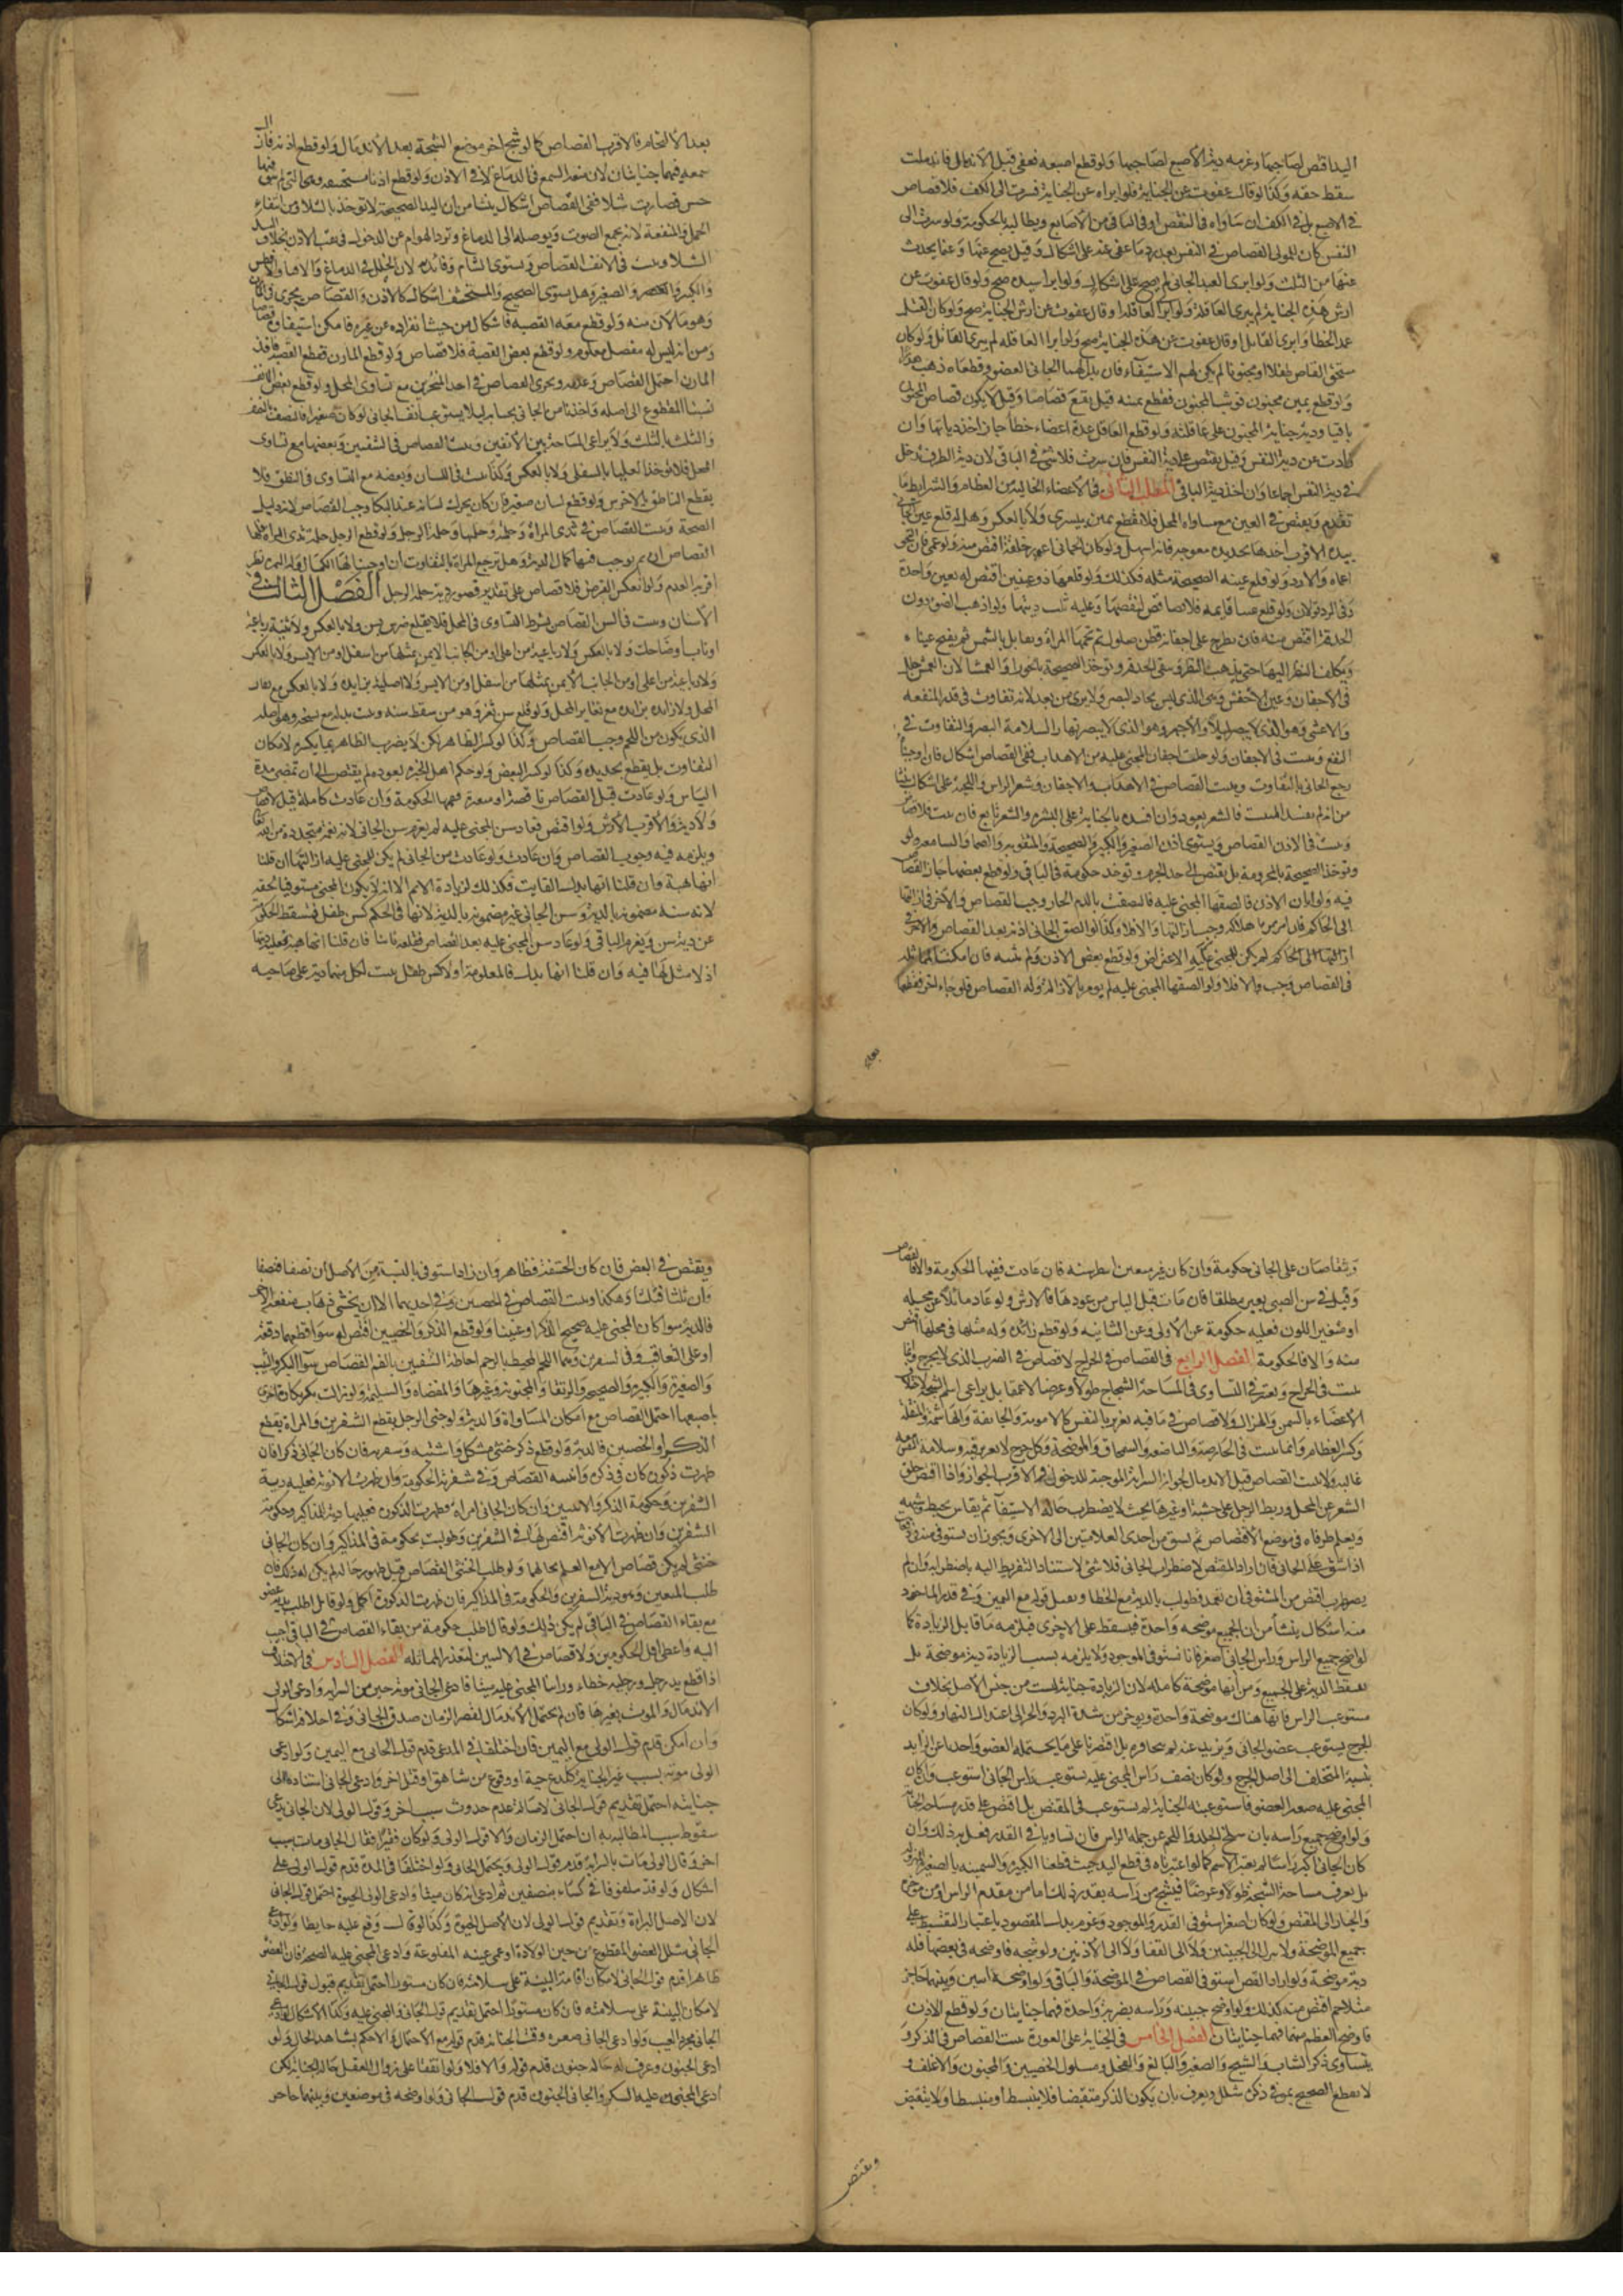 اليد اقتص لصاحبها وغرمه دية الأصبع لصاحبها ولو قطع اصبعه فعفى قبل الاندمال فاندملت
سقط حقه وكذا لو قال عفوت عن الجناية فلو ابراه عن الجناية فسرت الى الكف فلا قصاص
في الاصبع بل في الكف ان ساواه في النقص او في الباقي من الأصابع ويطالبه بالحكومة ولو سرت الى
النفس كان للولي القصاص في النفس بعد رد ما عفى عنه على اشكال وقيل يصح عنها وعما يحدث
عنها من الثلث ولو ابرى العبد الجاني لم يصح على اشكال ولو ابرا سيده صح ولو قال عفوت عن
ارش هذه الجناية لم يبرى العاقلة ولو ابرا العاقلة او قال عفوت عن ارش الجناية صح ولو كان القتل
عمد الخطا وابرى القاتل او قال عفوت عن هذه الجناية صح ولو ابرا العاقلة لم يبرى القاتل ولو كان
مستحق القصاص طفلا او مجنونا لم يكن لهم الاستيفاء فان بذل لهما الجاني العضو فقطعاه ذهب هدرا
ولو قطع يمين مجنون فوثب المجنون فقطع يمينه قيل يقع قصاصا وقيل لا يكون قصاص المجنون
باقيا ودية جناية المجنون على عاقلته ولو قطع العاقل عدة اعضاء خطأ جاز اخذ دياتها وان
زادت عن دية النفس وقيل يقتصر على دية النفس فان سرت فلا شئ في الباقي لان دية الطرف تدخل
في دية النفس اجماعا وان اخذ دية الباقي المطلب الثاني في الأعضاء الخالية من العظام والشرايط ما
تقدم ويقتص في العين مع مساواة المحل فلا تقطع يمين بيسرى ولا بالعكس وهل له قلع عين الجاني
بيده الاقرب اخذها بحديدة معوجة فانه اسهل ولو كان الجاني اعور خلقة اقتص منه ولو عمى فان الحق
اعماه ولا رد ولو قلع عينه الصحيحة مثله فكذلك ولو قلعها ذو عينين اقتص له بعين واحدة
وفي الرد قولان ولو قلع عينا قايمة فلا قصاص لنقصها وعليه ثلث ديتها ولو اذهب الضوء دون
الحدقة اقتص منه فان يطرح على اجفانه قطن مبلول ثم تحمى المراة وتقابل بالشمس ثم يفتح عيناه
ويكلف النظر اليها حتى يذهب النظر وتبقى الحدقة وتوخذ الصحيحة بالحولا والعمشا لان العمش خلل
في الاجفان وعين الاخفش وهي الذي ليس بحاد البصر ولا يرى من بعد لانه تفاوت في قدر المنفعة
والاعشى وهو الذي لا يبصر ليلا والاجهر وهو الذي لا يبصر نهارا لسلامة البصر والتفاوت في
النفع ويثبت في الاجفان ولو خلت اجفان المجني عليه من الاهداب ففي القصاص اشكال فان اوجبنا
رجع الجاني بالتفاوت ويثبت القصاص في الاهداب والاجفان وشعر الراس واللحية على اشكال ينشا
من انه لم يفسد المنبت فالشعر يعود وان افسده بالجناية على البشرة والشعر تابع فان نبت فلا قصاص
ويثبت في الاذن القصاص ويستوي اذن الصغير والكبير والصحيحة والمثقوبة والصما والسامعة ولو
وتوخذ الصحيحة بالمخرومة بل يقتص الى حد الخرم وتوخذ حكومة في الباقي ولو قطع بعضها جاز القصاص
فيه ولو ابان الاذن فالصقها المجني عليه فالتصقت بالدم الحار وجب القصاص والامر في ازالتها
الى الحاكم فان امن من هلاكه وجب ازالتها والا فلا وكذا لو الصق الجاني اذنه بعد القصاص والامر في
ازالتها الى الحاكم لم يكن للمجني عليه الاعتراض ولو قطع بعض الاذن ولم يبنه فان امكنت المماثلة
في القصاص وجب والا فلا ولو الصقها المجني عليه لم يومر بالازالة وله القصاص فلو جاء اخر فقطعها
بعد
بعد الالتحام فالاقرب القصاص كما لو شج اخر موضع الشجة بعد الاندمال ولو قطع اذنه فازال
سمعه فهما جنايتان لان منفعة السمع في الدماغ لا في الاذن ولو قطع اذنا مستحشفة وهي التي لم يبق فيها
حس وصارت شلا ففي القصاص اشكال ينشا من ان اليد الصحيحة لا توخذ بالشلا ومن استفاء
الجمال والمنفعة لانه يجمع الصوت ويوصله الى الدماغ وترد الهوام عن الدخول في ثقب الاذن بخلاف اليد
الشلا ويثبت في الانف القصاص ويستوي الشام وفاقده لان الخلل في الدماغ والاقنا والافطس
والكبير والصغير وهل يستوي الصحيح والمستحشف اشكال كالاذن والقصاص يجري في المارن
وهو ما لان منه ولو قطع معه القصبة فاشكال من حيث انفراده عن غيره فامكن استيفاوه قصاصا
ومن انه ليس له مفصل معلوم ولو قطع بعض القصبة فلا قصاص ولو قطع المارن فقطع القصبة فاقد
المارن احتمل القصاص وعدمه ويجري القصاص في احد المنخرين مع تساوي المحل ولو قطع بعض الانف
نسبنا المقطوع الى اصله واخذنا من الجاني بحسابه ليلا يستوعب انف الجاني لو كان صغيرا فالنصف بالنصف
والثلث بالثلث ولا يراعى المساحة بين الانفين ويثبت القصاص في الشفتين وبعضها مع تساوي
المحل فلا توخذ العليا بالسفلى ولا بالعكس وكذا يثبت في اللسان وبعضه مع التساوي في النطق فلا
يقطع الناطق بالاخرس ولو قطع لسان صغير فان كان يحرك لسانه عند البكا وجب القصاص لانه دليل
الصحة ويثبت القصاص في ثدي المراة وحلمته وحلمتها وحلمة الرجل ولو قطع الرجل حلمة ثدي المراة فلها
القصاص ان لم يوجب فيها كمال الدية وهل ترجع المراة بالتفاوت ان اوجبنا لها الكمال وله النصف نظر
اقربه العدم ولو انعكس الفرض فلا قصاص على تقدير قصور دية حلمة الرجل الفصل الثالث في
الأسنان ويثبت في السن القصاص بشرط التساوي في المحل فلا يقلع ضرس بسن ولا بالعكس ولا ثنية برباعية
او ناب او ضاحك ولا بالعكس ولا رباعية من اعلى او من الجانب الايمن بمثلها من اسفل او من الايسر ولا بالعكس
ولا رباعية من اعلى او من الجانب الأيمن بمثلها من اسفل او من الايسر ولا اصلية بزايدة ولا بالعكس مع تغاير
المحل ولا زايدة بزايدة مع تغاير المحل ولو قلع سن مثغر وهو من سقط سنه ونبت بدله مع سنخه وهو اصله
الذي يكون من اللحم وجب القصاص وكذا لو كسر الظاهر لكن لا يضرب الظاهر بما يكسره لامكان
التفاوت بل يقطع بحديدة وكذا لو كسر البعض ولو حكم اهل الخبرة بعوده لم يقتص الى ان تمضي مدة
الياس ولو عادت قبل القصاص ناقصة او متغيرة ففيها الحكومة وان عادت كاملة قيل لا قصاص
ولا دية والأقرب الأرش ولو اقتص فعاد سن المجني عليه لم يغرم سن الجاني لانه نعمة متجددة من الله تعالى
انها هبة وان قلنا انها بدل الفايت فكذلك لزيادة الالم الا انه لا يكون المجني مستوفيا لحقه
لانه سنه مضمونة بالدية وسن الجاني غير مضمونة بالدية لانها في الحكم كسن طفل فتسقط الحكومة
عن دية سن ويغرم الباقي ولو عاد سن المجني عليه بعد القصاص فقلعه ثانيا فان قلنا انها هبة فعليه ديتها
اذ لا مثل لها فيه وان قلنا انها بدل فالمعلومة اولا كسن طفل يثبت لكل منهما دية على صاحبه
ويتقاصان على الجاني حكومة وان كان غير مثغر انتظر سنة فان عادت ففيها الحكومة والا فالقصاص
وقيل في سن الصبي بعير مطلقا فان مات قبل الياس من عودها فالارش ولو عاد مائلا عن محله
او متغير اللون فعليه حكومة عن الأولى وعن الثانية ولو قطع زائدة وله مثلها في محلها اقتص
منه والا فالحكومة الفصل الرابع في القصاص في الجراح لا قصاص في الضرب الذي لا يجرح وانما
يثبت في الجراح ويعتبر في التساوي في المساحة الشجاج طولا وعرضا لا عمقا بل يراعى اسم الشجة لتفاوت
الأعضاء بالسمن والهزال ولا قصاص في ما فيه تغرير بالنفس كالمامومة والجائفة والهاشمة والمنقلة
وكسر العظام وانما يثبت في الحارصة والباضعة والسمحاق والموضحة وكل جرح لا تغرير فيه وسلامة النفس معه
غالبة ولا يثبت القصاص قبل الاندمال لجواز السراية الموجبة للدخول فيها الاقرب الجواز واذا اقتص حلق
الشعر عن المحل وربط الرجل على خشبة او غيرها بحيث لا يضطرب حالة الاستيفآ ثم يقاس بخيط وشبهه
ويعلم طرفاه في موضع الاقتصاص ثم يشق من احدى العلامتين الى الاخرى ويجوز ان يستوفى منه في دفعات
اذا شق على الجاني فان زاد المقتص لاضطراب الجاني فلا شئ لاستناد التفريط اليه باضطرابه وان لم
يضطرب اقتص من المستوفي ان تعمد وطولب بالدية مع الخطا ويقبل قوله مع اليمين وفي قدر الماخوذ
منه اشكال ينشأ من ان الجميع موضحة واحدة فيسقط على الاجزاء فيلزمه ما قابل الزيادة كما
لو اوضح جميع الراس وراس الجاني اصغر فانا نستوفي الموجود ولا يلزمه بسبب الزيادة دية موضحة بل
يقسط الدية على الجميع ومن انها موضحة كاملة لان الزيادة جناية ليست من جنس الأصل بخلاف
مستوعب الراس فانها هناك موضحة واحدة ويؤخر من شدة البرد والحر الى اعتدال النهار ولو كان
الجرح يستوعب عضو الجاني ويزيد عنه لم يتجاوزه بل اقتصرنا على ما يحتمله العضو واخذنا عن الزايد
بنسبة المتخلف الى اصل الجرح ولو كان نصف راس المجني عليه يستوعب راس الجاني استوعب وان كان
المجني عليه صغير العضو فاستوعبته الجناية لم يستوعب في المقتص بل اقتص على قدر مساحة الجناية
ولو اوضح جميع رأسه بان سلخ الجلد واللحم عن جملة الراس فان تساويا في القدر فعل به ذلك وان
كان الجاني اكبر رأسا لم يعتبر الاسم كما لو اعتبرناه في قطع اليد بحيث قطعنا الكبيرة والسمينة بالصغيرة والهزيلة
بل يعرف مساحة الشجة طولا وعرضا فيشج من رأسه بقدر ذلك اما من مقدم الراس او من موخره
والخيار الى المقتص ولو كان اصغر استوفى القدر الموجود وغرم بدل المفقود باعتبار التقسيط على
جميع الموضحة ولا ينزل الى الجبينين ولا الى القفا ولا الى الأذنين ولو شجه فاوضحه في بعضها فله
دية موضحة ولو اراد القصاص استوفى القصاص في الموضحة والباقي ولو اوضحه اثنتين وبينهما حاجز
مثلاحم اقتص منه كذلك ولو اوضح جبينه ورأسه بضربة واحدة فهما جنايتان ولو قطع الاذن
فاوضح العظم منها فهما جنايتان الفصل الخامس في الجناية على العورة يثبت القصاص في الذكر و
يتساوى ذكر الشاب والشيخ والصغير والبالغ والفحل ومسلول الخصيين والمختون والاغلف و
لا يقطع الصحيح بمن في ذكره شلل ويعرف بان يكون الذكر منقبضا فلا ينبسط او منبسطا ولا ينقبض
ويقتص
ويقتص في البعض فان كان الحشفة فظاهر وان زاد استوفى بالنسبة من الأصل ان نصفا فنصفا
وان ثلثا فثلثا وهكذا ويثبت القصاص في الخصيتين وفي احديهما الا ان يخشى ذهاب منفعة الاخرى
فالدية سوا كان المجني عليه صحيح الذكر او عنينا ولو قطع الذكر والخصيتين اقتص له سوا قطعهما دفعة
او على التعاقب وفي الشفرين وهما اللحم المحيط بالرحم احاطة الشفتين بالفم القصاص سوآ البكر والثيب
والصغيرة والكبيرة والصحيحة والرتقا والمجنونة وغيرها والمفضاة والسليمة ولو ازالت بكر بكارة اخرى
باصبعها احتمل القصاص مع امكان المساواة والدية ولو جنى الرجل بقطع الشفرين والمراة بقطع
الذكر او الخصيتين فالدية ولو قطع ذكر خنثى مشكل وانثييه وشفريه فان كان الجاني ذكرا فان
ظهرت ذكوريته كان في ذكره وانثييه القصاص وفي شفريه الحكومة وان ظهرت الانوثة فعليه دية
الشفرين وحكومة الذكر والانثيين وان كان الجاني امراة وظهرت الذكورة فعليها دية المذاكير وحكومة
الشفرين وان ظهرت الأنوثة اقتص لها في الشفرين وطولبت بحكومة في المذاكير وان كان الجاني
خنثى لم يكن قصاص الا مع العلم بحالهما ولو طلب الخنثى القصاص قبل ظهور حاله لم يكن له ذلك فان
مع بقاء القصاص في الباقي لم يكن ذلك ولو قال اطلب حكومة مع بقاء القصاص في الباقي اجيب
اليه واعطي اقل الحكومتين ولا قصاص في الاليتين لتعذر المماثلة الفصل السادس في الاختلاف
اذا قطع يد رجل ورجليه خطاء وراينا المجني عليه ميتا فادعى الجاني موته حين من السراية وادعى الولي
الاندمال والموت بغيرها فان لم يحتمل الاندمال لقصر الزمان صدق الجاني وفي احلافه اشكال
وان امكن قدم قول الولي مع اليمين فان اختلفا في المدعى قدم قول الجاني مع اليمين ولو ادعى
الولي موته بسبب غير الجناية كلدغ حية او وقوع من شاهق او قتل اخر وادعى الجاني استناده الى
جنايته احتمل تقديم قول الجاني لاصالة عدم حدوث سبب اخر وقول الولي لان الجاني يدعي
سقوط سبب المطالبة به ان احتمل الزمان والا قول الولي ولو كان فقيرا فقال الجاني مات بسبب
اخر وقال الولي مات بالسراية قدم قول الولي ويحتمل الجاني ولو اختلفا في المدة قدم قول الولي على
اشكال ولو قد ملفوفا في كساء بنصفين ثم ادعى انه كان ميتا وادعى الولي الحيوة احتمل قول الجاني
لان الاصل البراءة وتقديم قول الولي لان الأصل الحيوة وكذا لو قال وقع عليه حايطا ولو ادعى
الجاني شلل العضو المقطوع من حين الولادة او عمى عينه المقلوعة وادعى المجني عليه الصحة فان العضو
ظاهرا قدم قول الجاني لامكان اقامة البينة على سلامته فان كان مستورا احتمل تقديم قبول قول الجاني
لامكان البينة على سلامته فان كان مستورا احتمل تقديم قول الجاني والمجني عليه وكذا الاشكال لو ادعى
الجاني تجدد العيب ولو ادعى الجاني صغره وقت الجناية قدم قوله مع الاحتمال والا حكم بشاهد الحال ولو
ادعى الجنون وعرف له حالة جنون قدم قوله والا فلا ولو اتفقا على زوال العقل حالة الجناية لكن
ادعى المجني عليه السكر والجاني الجنون قدم قول الجاني ولو اوضحه في موضعين وبينهما حاجز